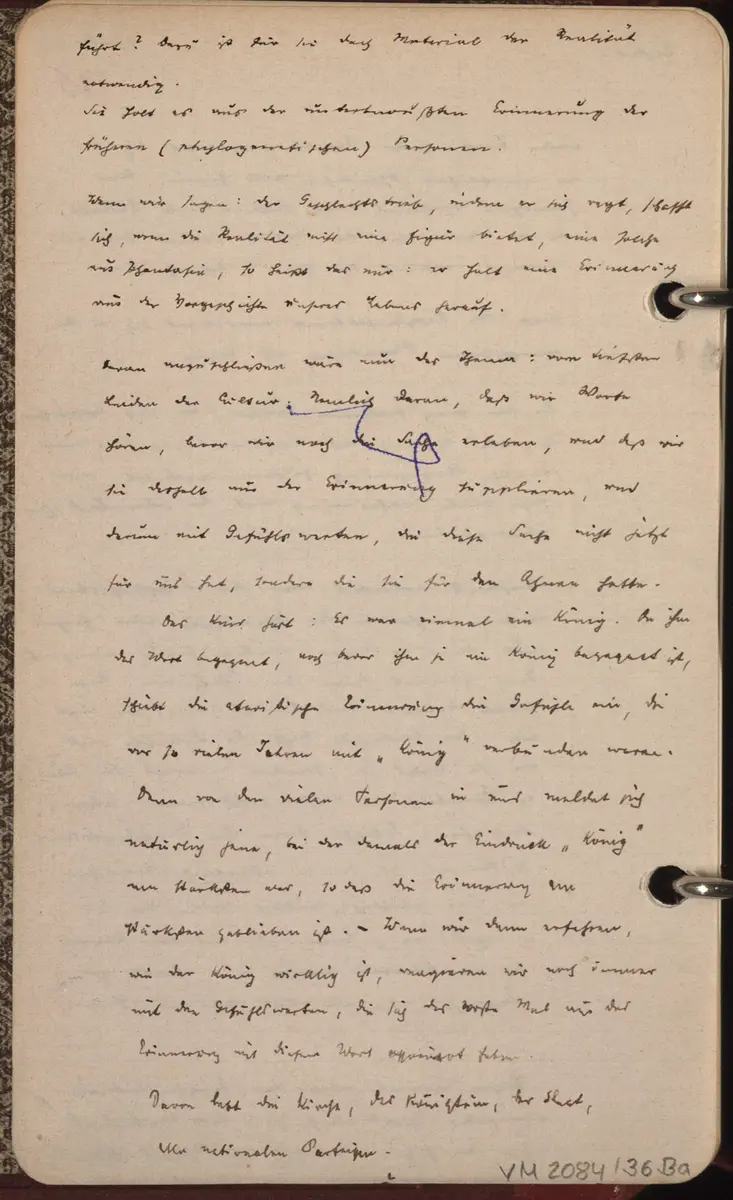 führt? Dazu ist für sie doch Material der Realität
notwendig.
Sie holt es aus der unterbewußten Erinnerung der
früheren (phylogenetischen) Personen.
Wenn wir sagen: der Geschlechtstrieb, indem er sich regt, schafft
sich, wenn die Realität nicht eine Figur bietet, eine solche
aus Phantasie, so heißt das nur: er holt eine Erinnerung
aus der Vorgeschichte unseres Lebens herauf.
Daran anzuschließen wäre nun das Thema: vom tiefsten
Leiden der Cultur: Nemlich daran, daß wir Worte
hören, bevor wir noch die Sache erleben, und daß wir
sie deshalb aus der Erinnerung supplieren, und
darum mit Gefühlswerten, die diese Sache nicht jetzt
für uns hat, sondern die sie für den Ahnen hatte.
Das Kind hört: Es war einmal ein König. Da ihm
das Wort begegnet, noch bevor ihm je ein König begegnet ist,
schiebt die atavistische Erinnerung die Gefühle ein, die
vor so vielen Jahren mit „König" verbunden waren.
Denn von den vielen Personen in uns meldet sich
natürlich jene, bei der damals der Eindruck „König"
am stärksten war, so daß die Erinnerung am
stärksten geblieben ist. – Wenn wir dann erfahren,
wie der König wirklich ist, reagieren wir noch immer
mit den Gefühlswerten, die sich das erste Mal aus der
Erinnerung mit diesem Wort associirt haben.
Davon lebt die Kirche, das Königtum, der Staat,
alle nationalen Parteien.
VM 2084/36 Ba